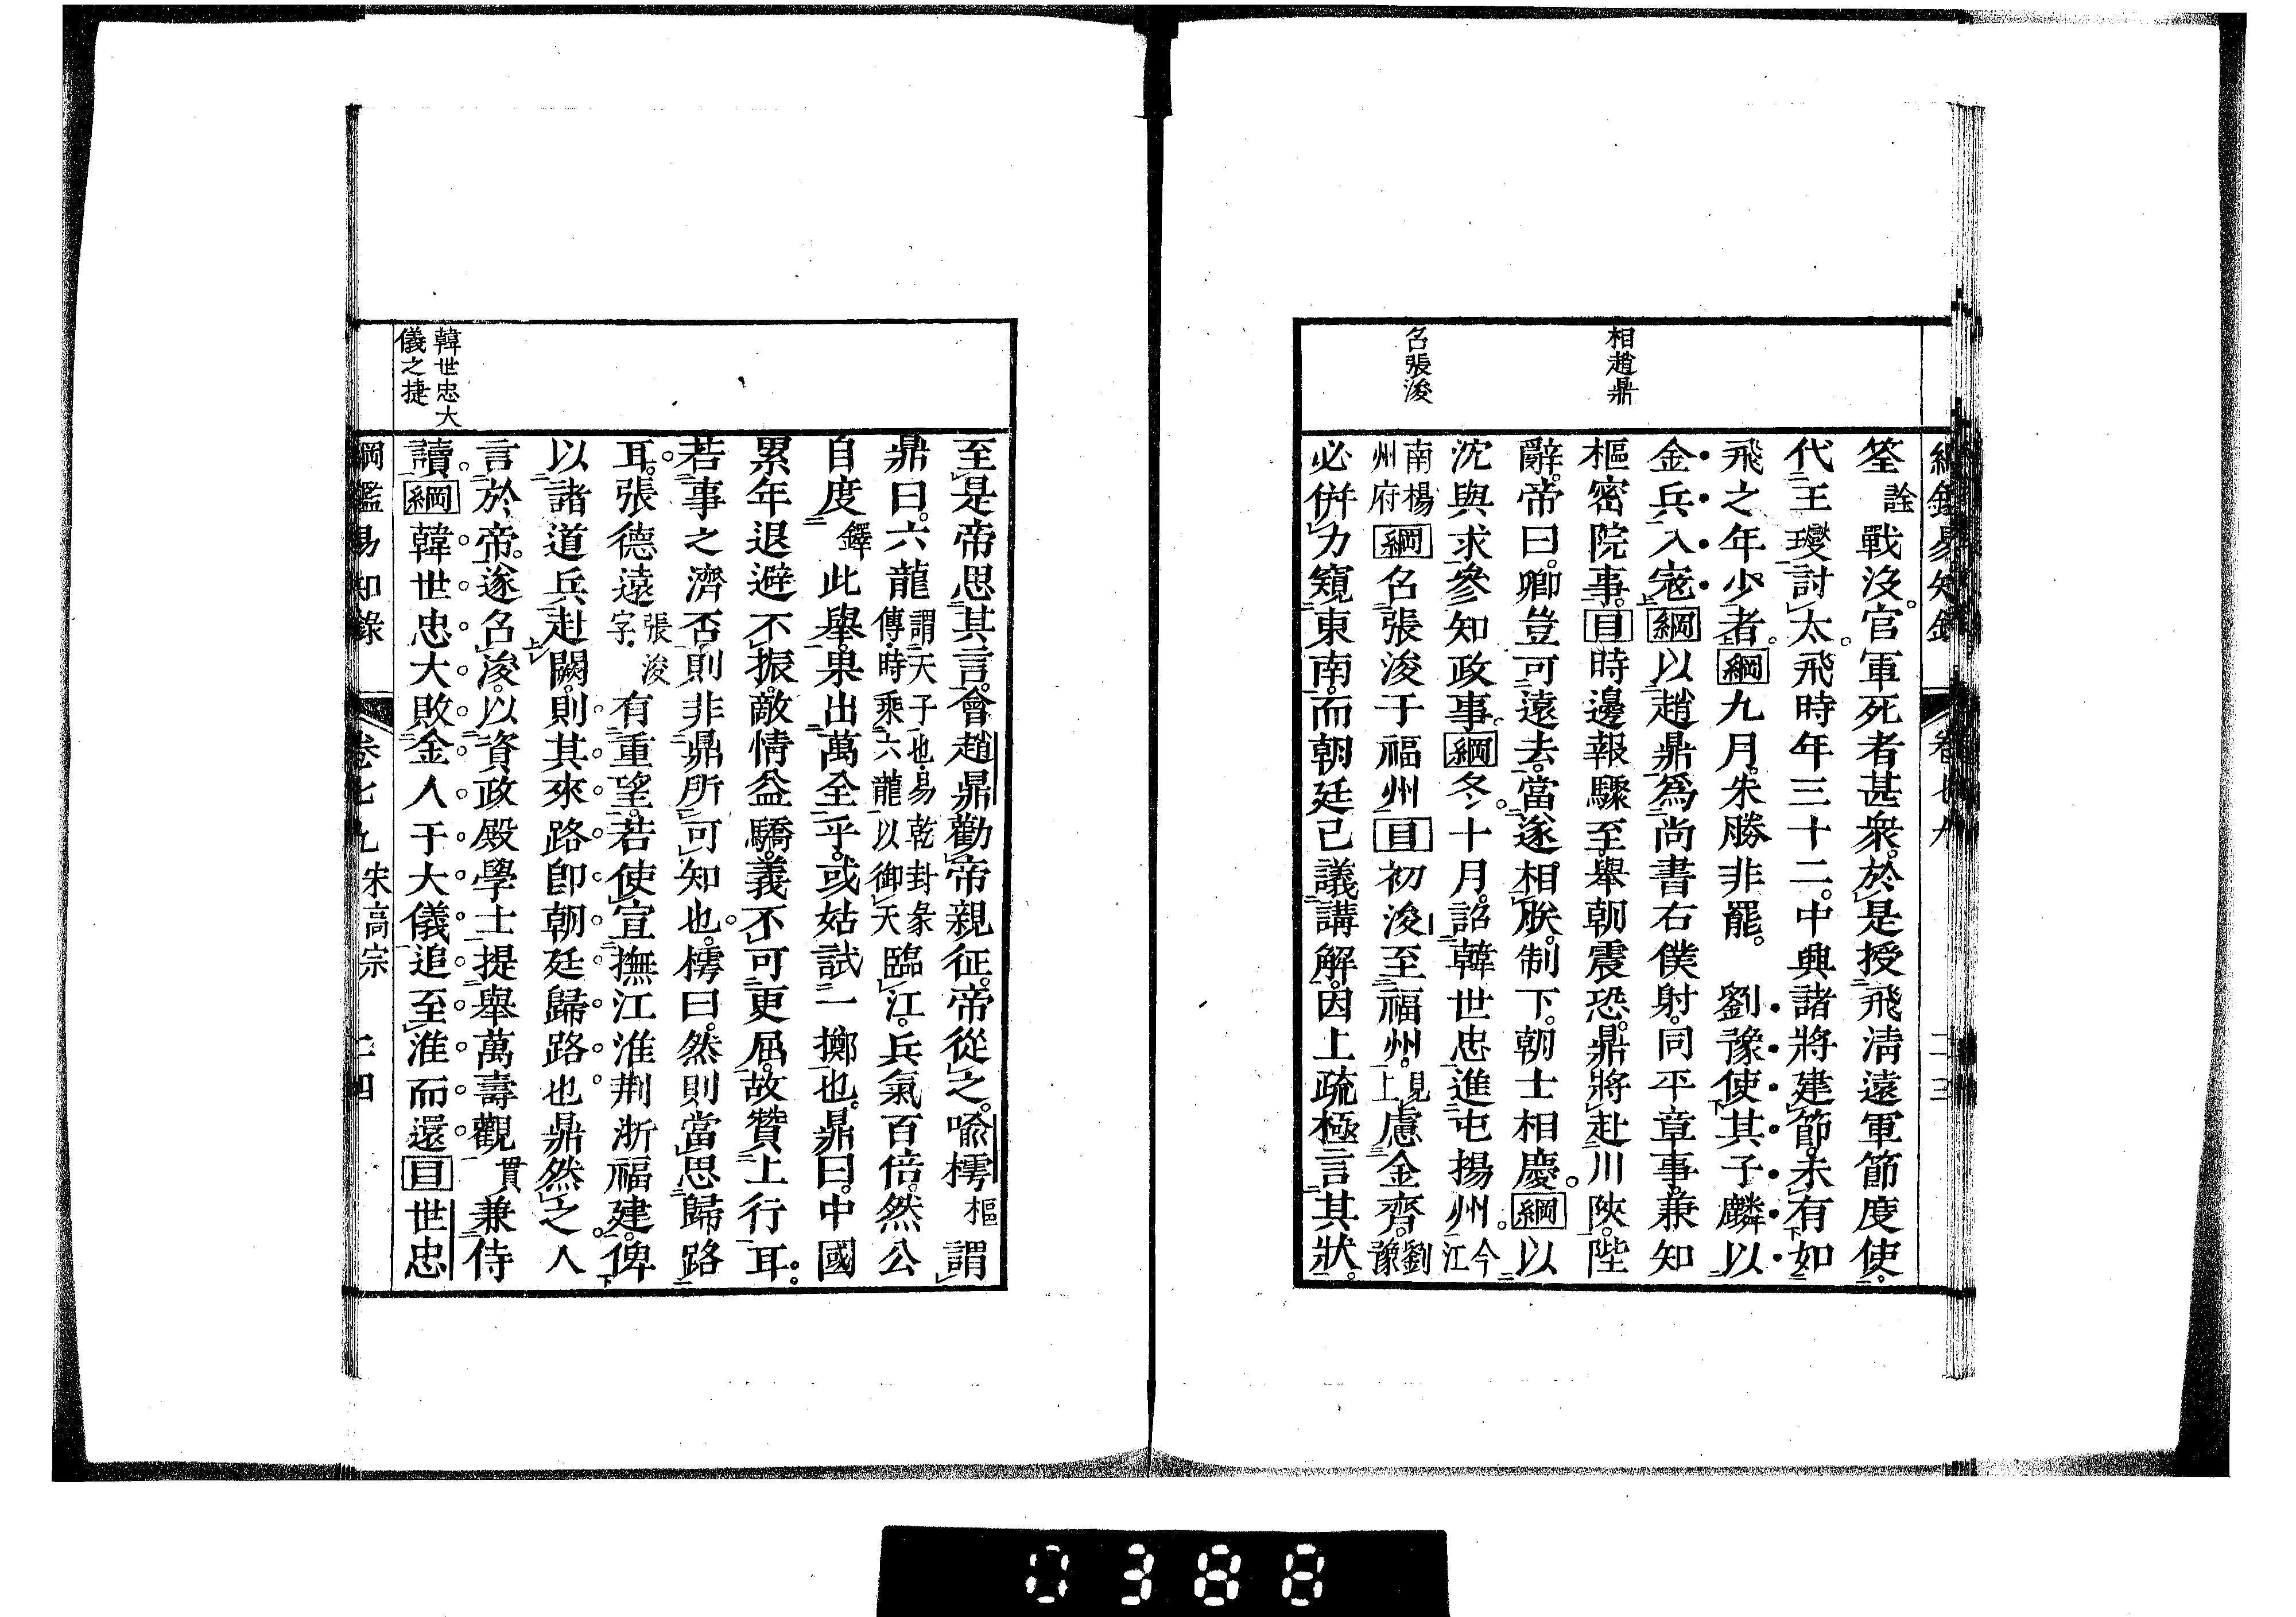 綱鑑易知錄　卷七九　二三
相趙鼎
召張浚
筌詮戰沒。官軍死者甚衆。於是授飛淸遠軍節度使。
代王𤫉討太。飛時年三十二。中興諸將建節。未有如
飛之年少者。綱九月。朱勝非罷。　劉豫使其子麟以
金兵入寇。綱以趙鼎爲尚書右僕射。同平章事。兼知
樞密院事。目時邊報驟至。舉朝震恐。鼎將赴川陝。陛
辭。帝曰。卿豈可遠去。當遂相朕。制下。朝士相慶。綱以
沈與求參知政事。綱冬十月。詔韓世忠進屯揚州。今江
南楊州府綱召張浚于福州。目初浚至福州。見上慮金齊。劉豫
必併力窺東南。而朝廷已議講解。因上疏極言其狀。
至是帝思其言。會趙鼎勸帝親征。帝從之。喩樗樞謂
鼎曰。六龍謂天子也。易乾封彖傳。時乘六龍以御天臨江。兵氣百倍。然公
自度鐸此舉。果出萬全乎。或姑試一擲也。鼎曰。中國
累年退避不振。敵情益驕。義不可更屈。故贊上行耳。
若事之濟否。則非鼎所可知也。樗曰。然則當思歸路
耳。張德遠張浚字。有重望。若使宣撫江淮荆浙福建。俾
以諸道兵赴闕。則其來路卽朝廷歸路也。鼎然之。入
言於帝。遂召浚。以資政殿學士提舉萬壽觀貫兼侍
讀。綱韓世忠大敗金人于大儀追至淮而還目世忠
韓世忠大
儀之捷
綱鑑易知錄　卷七九　宋高宗　二四
0388